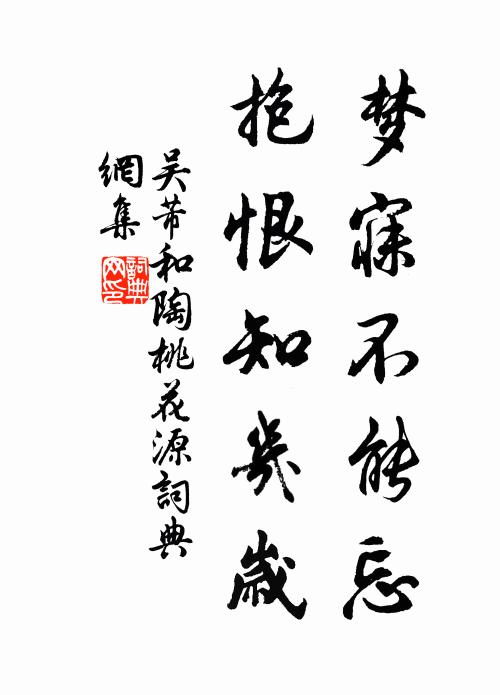 梦寐不能忘
抱恨知几歲
吴芾和陶桃花源詞典
網集
詞典
网印